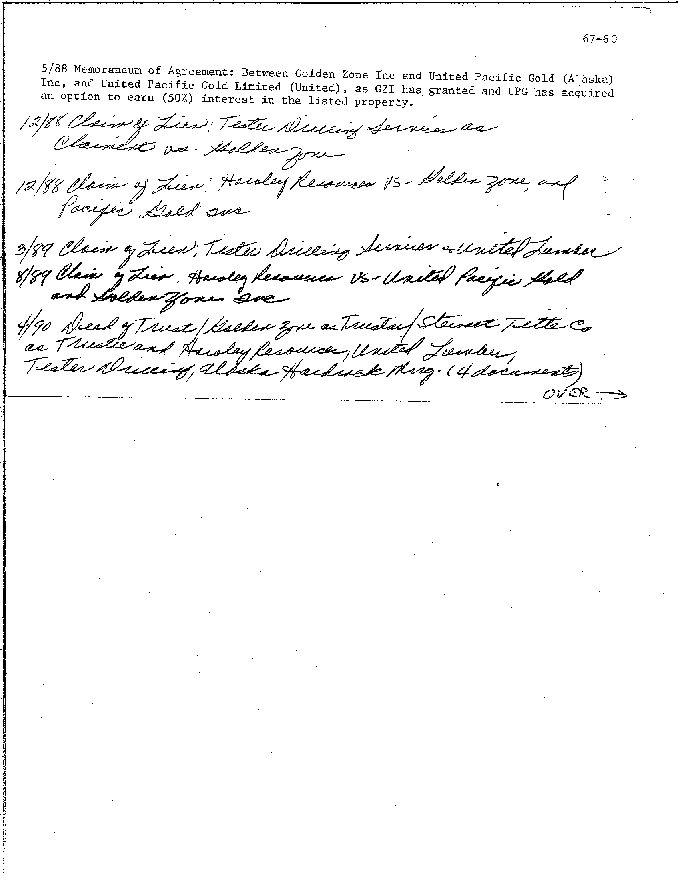 67-60
5/88 Memorandum of Agreement: Between Golden Zone Inc and United Pacific Gold (Alaska)
Inc, and United Pacific Gold Limited (United), as GZI has granted and UPG has acquired
an option to earn (50%) interest in the listed property.
12/88 Claim of Lien: Tester Drilling Services as
Claiment vs. Golden Zone
12/88 Claim of Lien: Hawley Resources VS- Golden Zone, and
Pacific Gold Inc
3/89 Claim of Lien: Tester Drilling Services & United Lumber
8/89 Claim of Lien. Hawley Resources VS- United Pacific Gold
and Golden Zone Inc
4/90 Deed of Trust/Golden Zone as Trustor/ Stewart Title Co
as Trustee and Hawley Resources, United Lumber,
Tester Drilling, Alaska Hardrock Mng. (4 documents)
OVER →